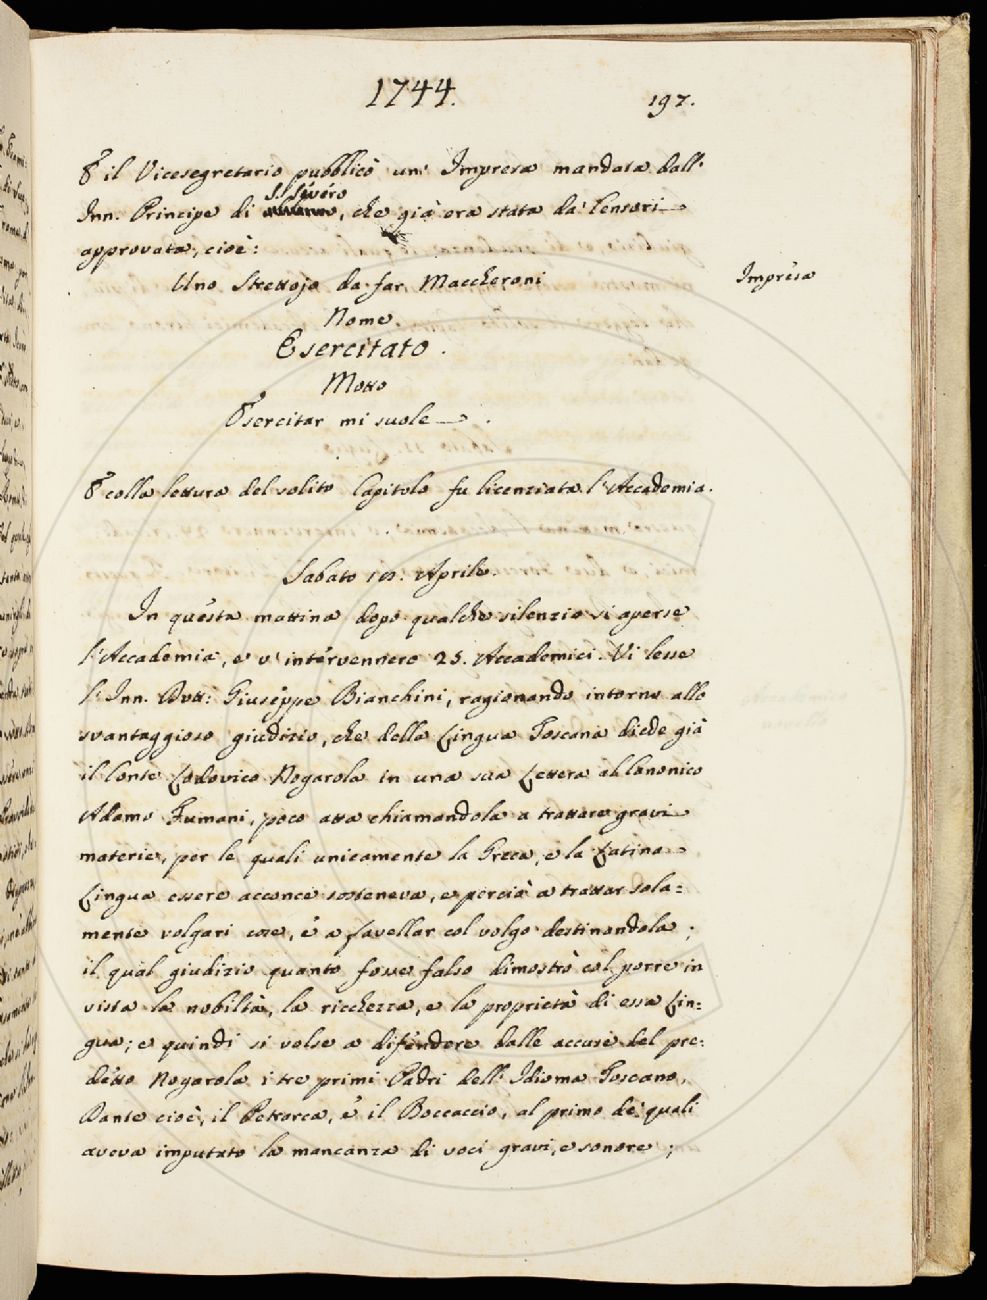 1744.
197.
E il Vicesegretario pubblicò un' Impresa mandata dall'
S. Sevéro
Inn. Principe di , che già era stata da' Censori
approvata, cioè:
Impresa
Uno Strettojo da far Maccheroni
Nome.
Esercitato.
Motto
Esercitar mi suole.
E colla lettura del solito Capitolo fu licenziata l'Accademia.
Sabato Aprile.
In questa mattina dopo qualche silenzio si aperse
l'Accademia, e v' intervennero 25. Accademici. Vi lesse
l'Inn. Dott: Giuseppe Bianchini, ragionando intorno allo
svantaggioso giudizio, che della Lingua Toscana diede già
il Conte Lodovico Nogarola in una sua Lettera al Canonico
Adamo Fumani, poco atta chiamandola a trattare gravi
materie, per le quali unicamente la Greca, e la Latina
Lingua essere acconce sosteneva, e perciò a trattar sola=
mente volgari cose, è a favellar col volgo destinandola;
il qual giudizio quanto fosse falso dimostrò col porre in
vista la nobiltà, la ricchezza, e la proprietà di essa Lin=
gua; e quindi si volse a difendere dalle accuse del pre=
detto Nogarola i tre primi Padri dell' Idioma Toscano,
Dante cioè, il Petrarca, è il Boccaccio, al primo de' quali
aveva imputato la mancanza di voci gravi, e sonore;